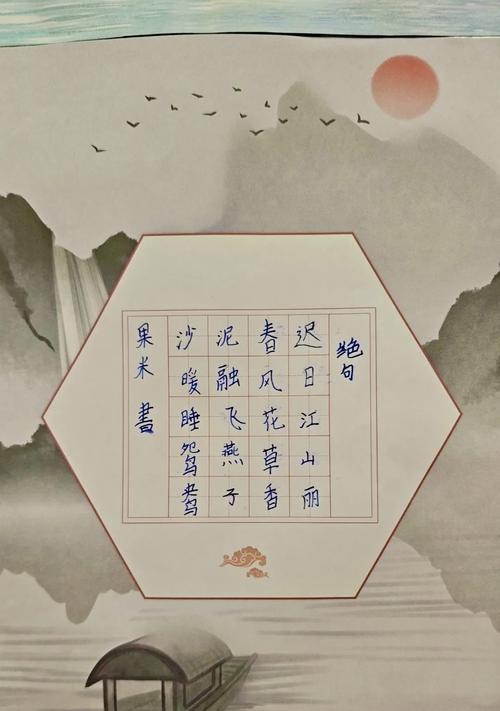 绝句
迟日江山丽
春风花草香
泥融飞燕子
沙暖睡鸳鸯
果米 書